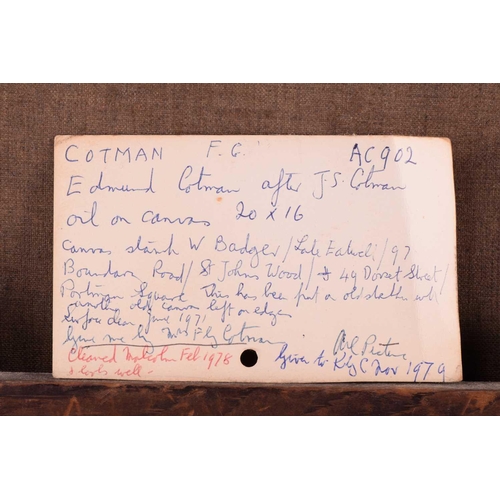 COTMAN F. G. AC902
Edmund Cotman after J.S. Cotman
oil on canvas 20 x 16
Canvas stamp W Badger / Late Eatwell / 97
Boundary Road / St Johns Wood / & 49 Dorset Street /
Portman Square This has been put on old stretcher with
old canvas left on edges
Surface clean, June 1971
Given me by Mrs F G Cotman
Cleaned Malcolm Feb 1978
& looks well -
Given to Nov 1979